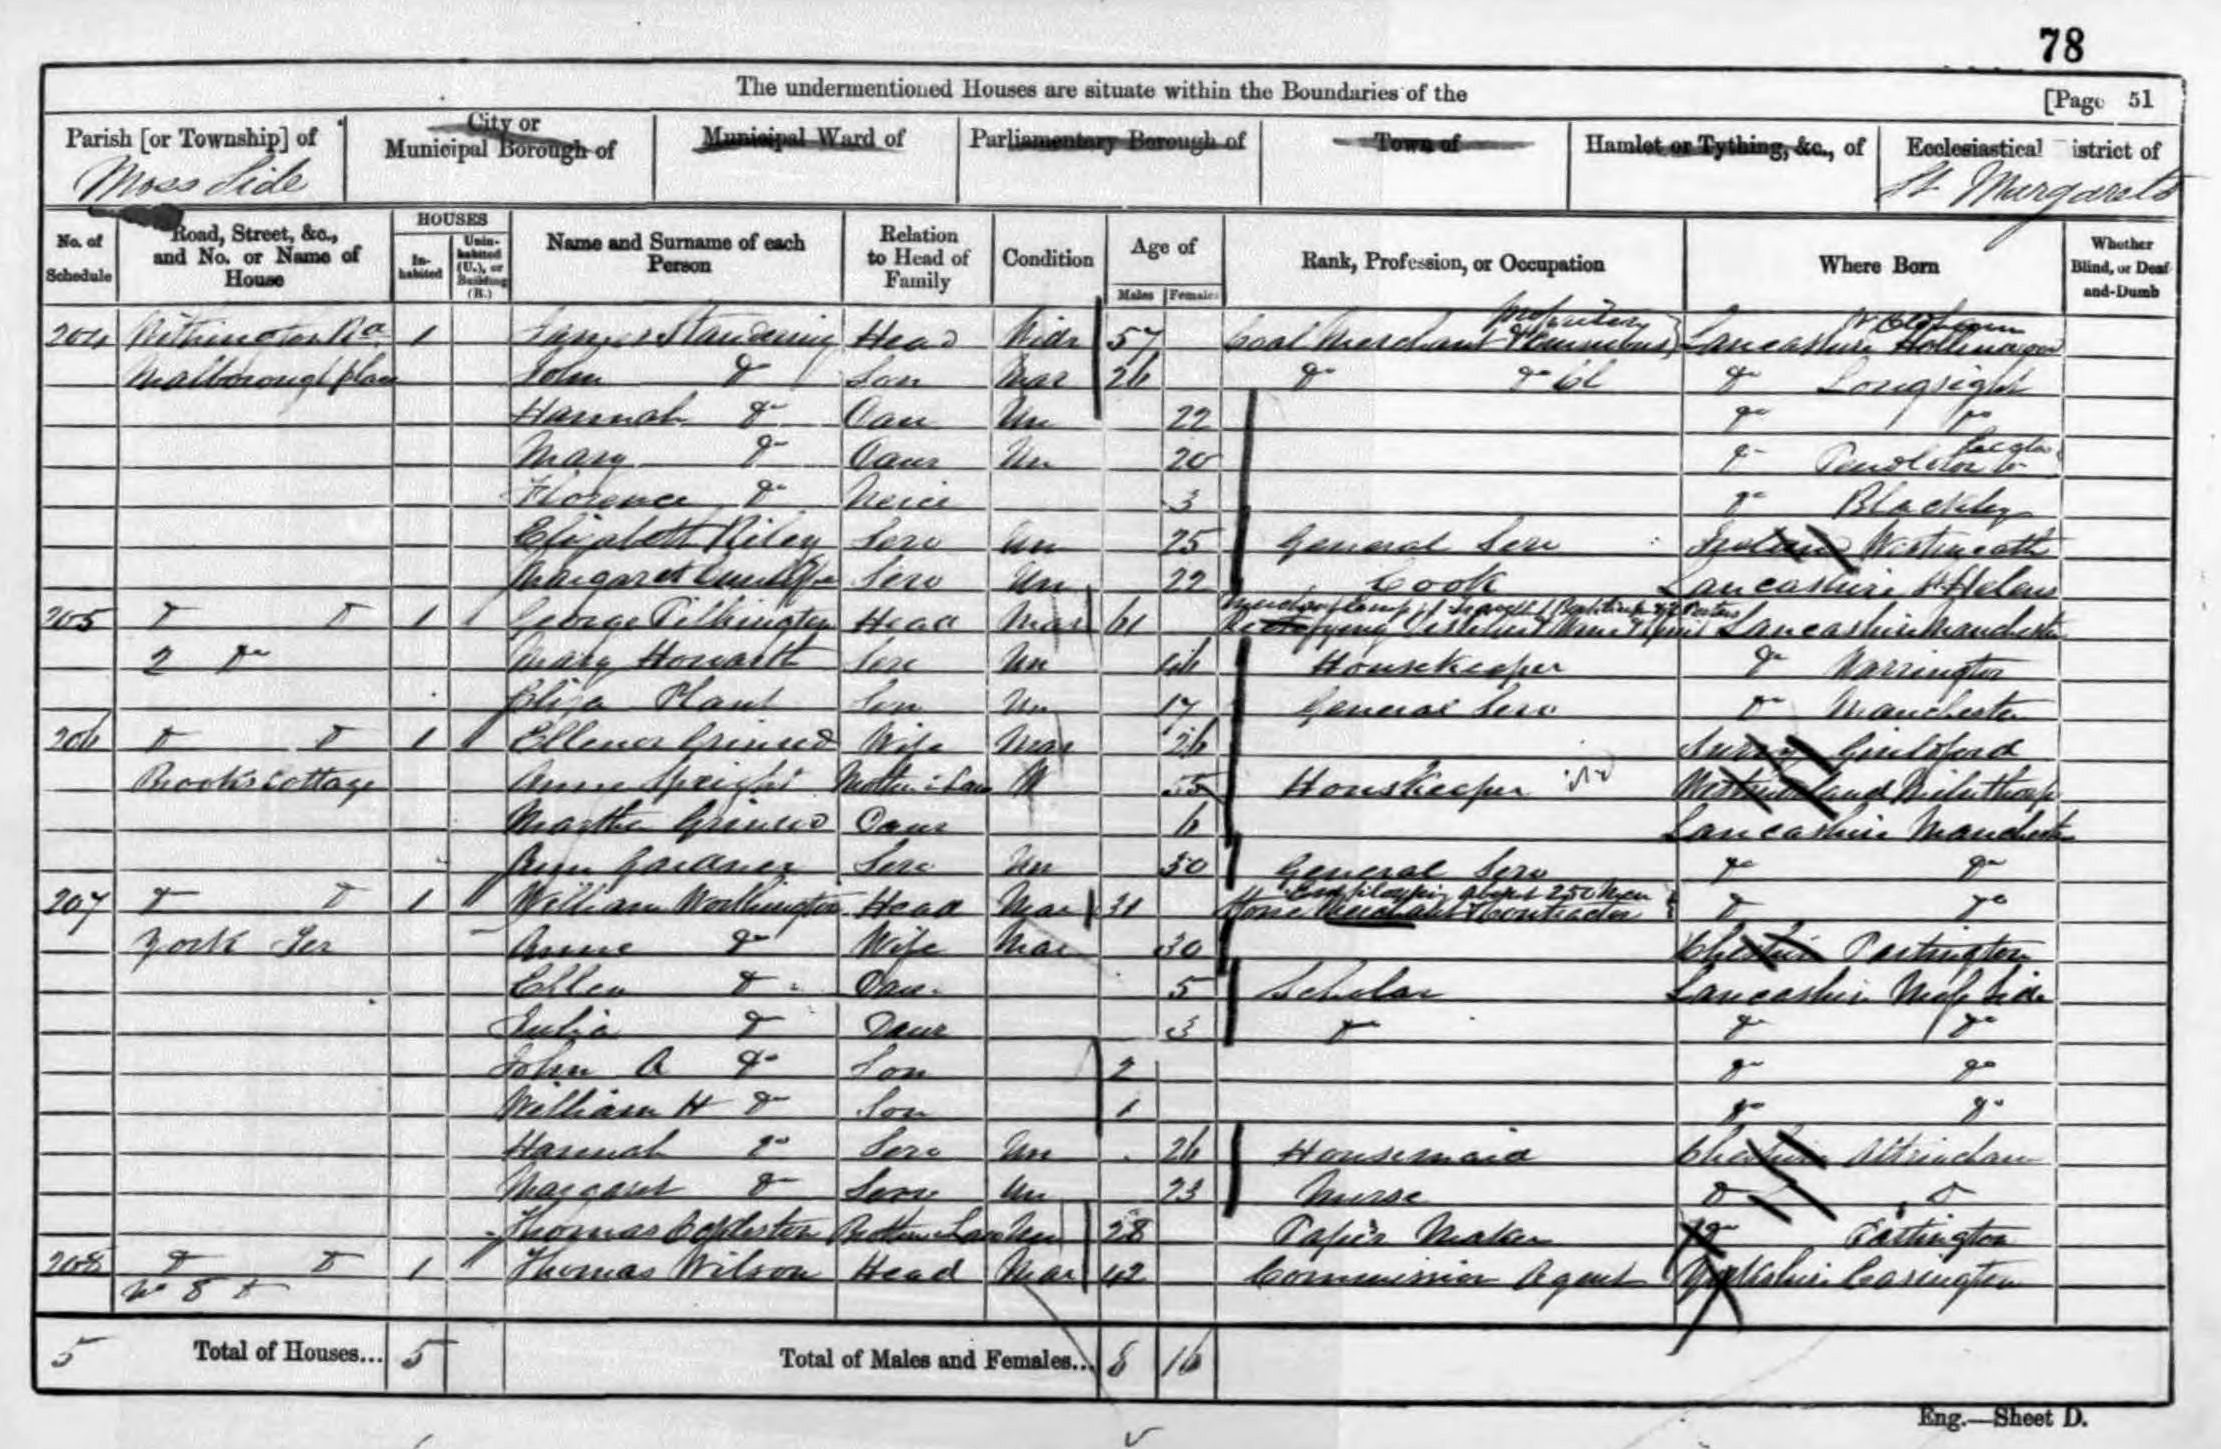 78
The undermentioned Houses are situate within the Boundaries of the
[Page 51
Parish [or Township] of
City or Municipal Borough of
Municipal Ward of
Parliamentary Borough of
Town of
Hamlet or Tything, &c., of
Ecclesiastical District of
Moss Side
St Margarets
No. of Schedule
Road, Street, &c., and No. or Name of House
HOUSES
In-habited
Unin-habited (U.), or Building (B.)
Name and Surname of each Person
Relation to Head of Family
Condition
Age of
Males
Females
Rank, Profession, or Occupation
Where Born
Whether Blind, or Deaf-and-Dumb
204 Withington Rd 1 James Standering Head Widr 57 Coal Merchant & Omnibus Lancashire Hollinwood
Malborough place John Do Son Mar 26 Do Do Longsight
Hannah Do Daur Un 22 Do Do
Mary Do Daur Un 20 Do Pendleton
Florence Do Neice 3 Do Blackley
Elizabeth Riley Serv Un 25 General Serv Ireland Westmeath
Margaret Serv Un 22 Cook Lancashire St Helens
205 Do Do 1 George Pilkington Head Mar 61 Lancashire Manchester
2 Do Mary Howarth Serv Un 46 Housekeeper Do Warrington
Eliza Plant Serv Un 17 General Serv Do Manchester
206 Do Do 1 Ellenor Wife Mar 26 Surrey Guildford
Brooks Cottage Anne Speight Mother in Law W 55 Houskeeper Westmorland
Martha Daur 6 Lancashire Manchester
Ann Gardner Serv Un 30 General Serv Do Do
Employing about 250 Men
207 Do Do 1 William Worthington Head Mar 31 Stone Merchant & Contractor Do Do
York Ter Anne Do Wife Mar 30 Cheshire Partington
Ellen Do Daur 5 Scholar Lancashire Moss Side
Julia Do Daur 3 Do Do Do
John A Do Son 2 Do Do
William H Do Son 1 Do Do
Hannah Do Serv Un 26 Housemaid Cheshire Altrincham
Margaret Do Serv Un 23 Nurse Do Do
Thomas Brother in Law Un 28 Paper Maker Do Partington
208 Do Do 1 Thomas Wilson Head Mar 42 Commission Agent Yorkshire
No 8 Do
5 Total of Houses... 5
Total of Males and Females... 8 16
Eng.—Sheet D.